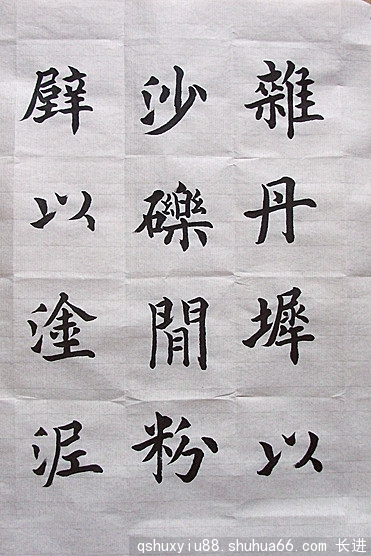 雜丹墀以
沙礫閒粉
壁以塗泥
qshuxyiu88.shuhua66.com 长进